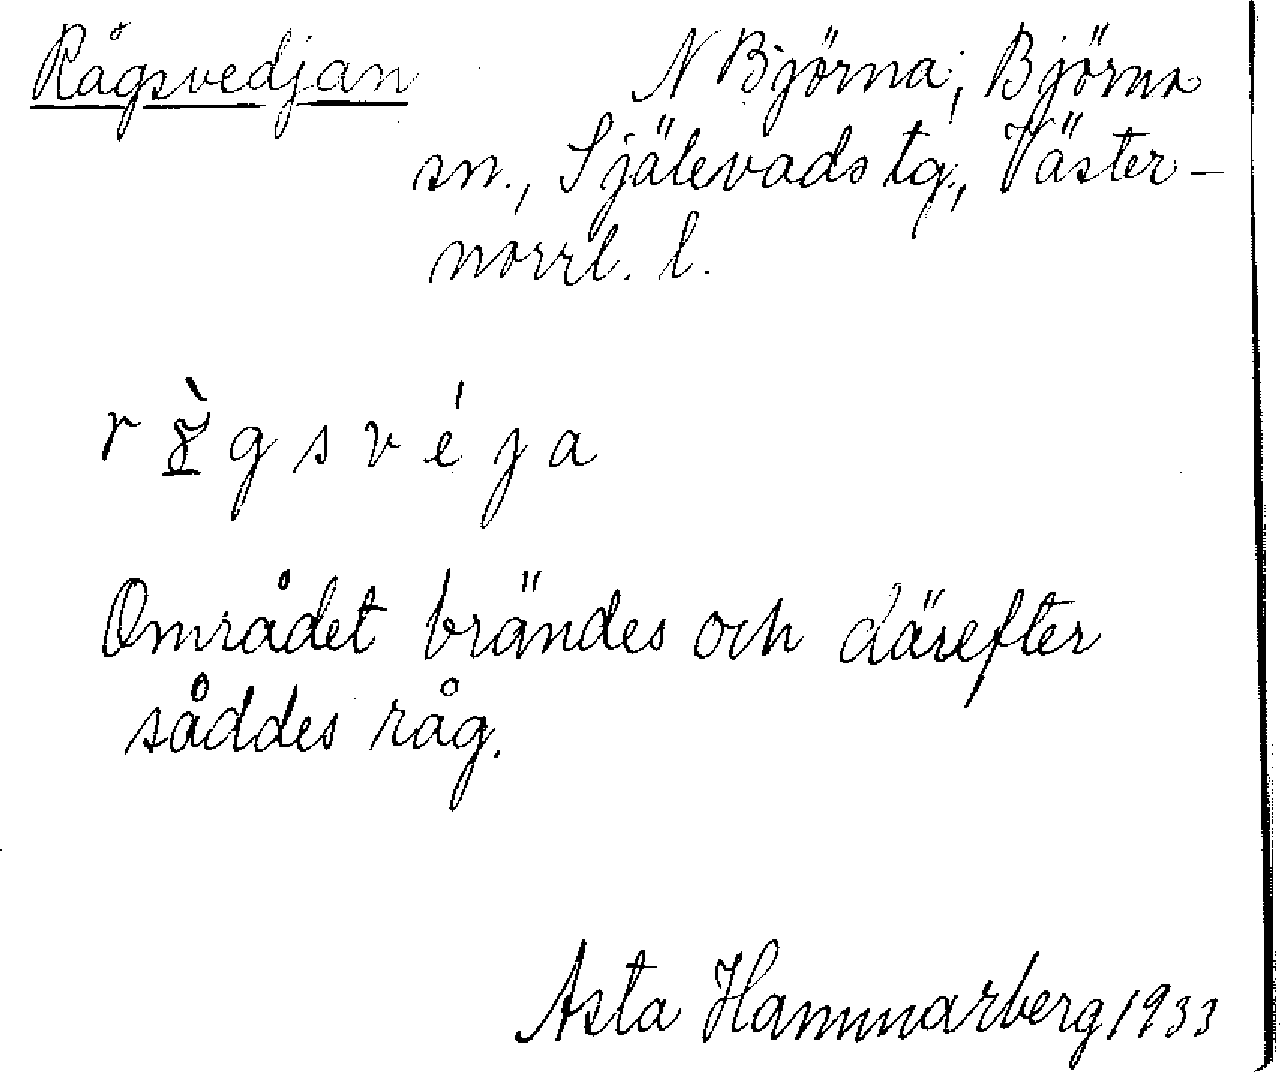 Rågsvedjan N Björna; Björna
sn., Själevads tg., Väster-
norrl. l.
Området brändes och därefter
såddes råg.
Asta Hammarberg 1933